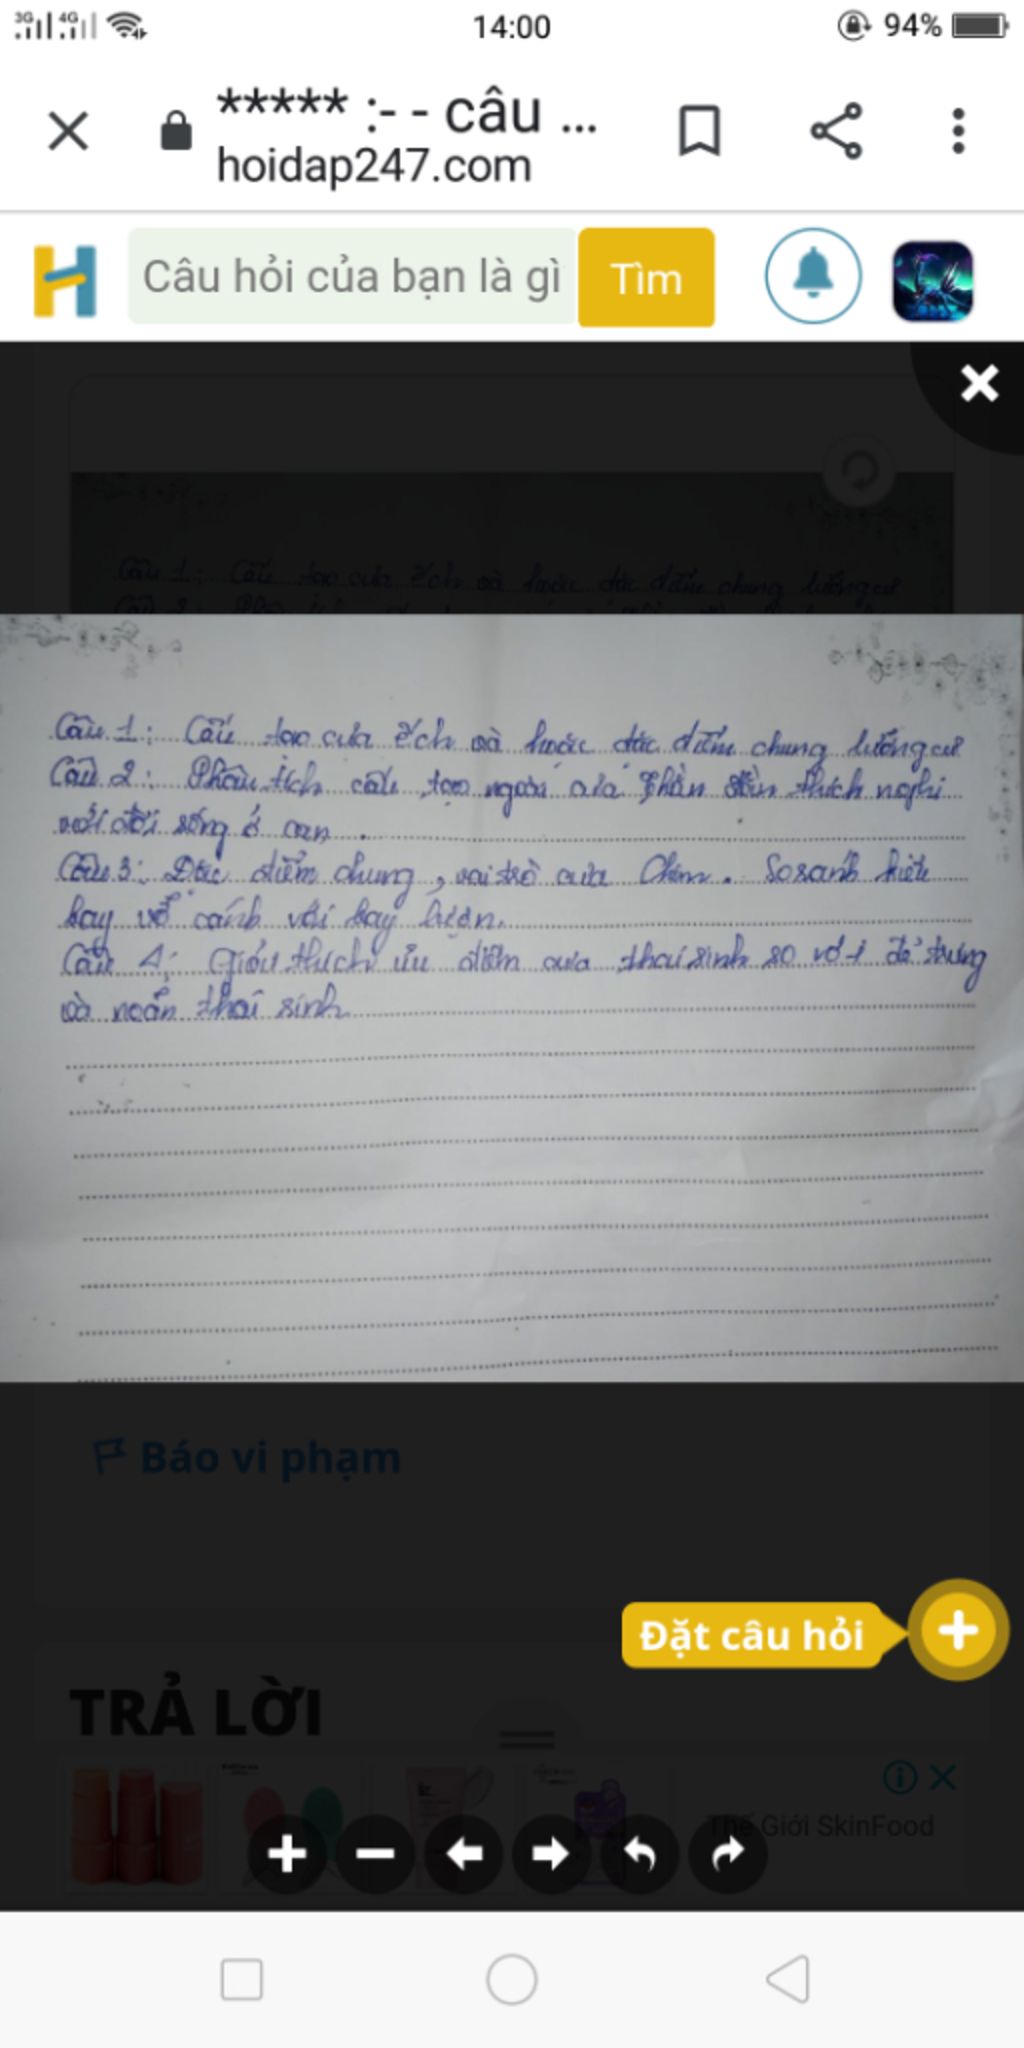 3G 4G 14:00 94%
***** :- - câu ...
hoidap247.com
Câu hỏi của bạn là gì Tìm
Câu 1: Cấu tạo của ếch và hoặc đặc điểm chung lưỡng cư
Câu 1: Cấu tạo của ếch và hoặc đặc điểm chung lưỡng cư
Câu 2: Phân tích cấu tạo ngoài của thằn lằn thích nghi
với đời sống ở cạn.
Câu 3: Đặc điểm chung, vai trò của Chim. So sánh kiểu
bay vỗ cánh với bay lượn.
Câu 4: Giải thích ưu điểm của thai sinh so với đẻ trứng
và noãn thai sinh
Báo vi phạm
Đặt câu hỏi
TRẢ LỜI
Thế Giới SkinFood